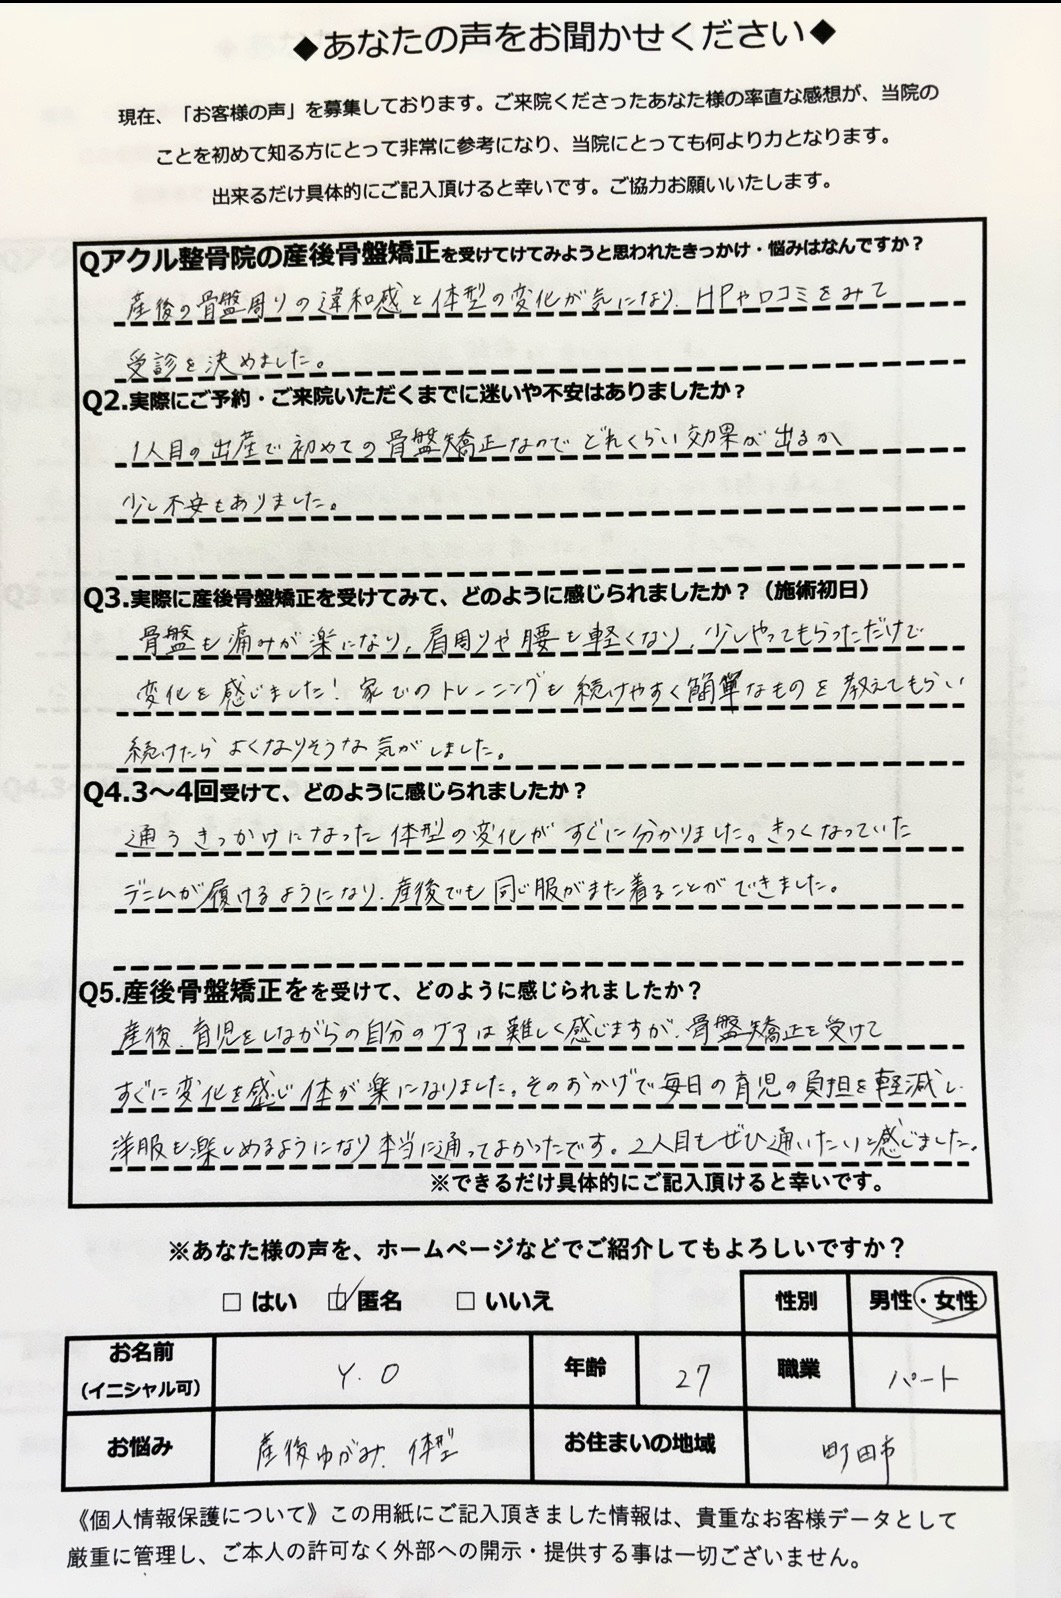 ◆あなたの声をお聞かせください◆
現在、「お客様の声」を募集しております。ご来院くださったあなた様の率直な感想が、当院の
ことを初めて知る方にとって非常に参考になり、当院にとっても何より力となります。
出来るだけ具体的にご記入頂けると幸いです。ご協力お願いいたします。
Qアクル整骨院の産後骨盤矯正を受けてけてみようと思われたきっかけ・悩みはなんですか？
産後の骨盤周りの違和感と体型の変化が気になり、HPや口コミをみて
受診を決めました。
Q2.実際にご予約・ご来院いただくまでに迷いや不安はありましたか？
1人目の出産で初めての骨盤矯正なのでどれくらい効果が出るか
少し不安もありました。
Q3.実際に産後骨盤矯正を受けてみて、どのように感じられましたか？（施術初日）
骨盤も痛みが楽になり、肩周りや腰も軽くなり、少しやってもらっただけで
変化を感じました！家でのトレーニングも続けやすく簡単なものを教えてもらい
続けたらよくなりそうな気がしました。
Q4.3～4回受けて、どのように感じられましたか？
通うきっかけになった体型の変化がすぐに分かりました。きつくなっていた
デニムが履けるようになり、産後でも同じ服がまた着ることができました。
Q5.産後骨盤矯正をを受けて、どのように感じられましたか？
産後、育児をしながらの自分のケアは難しく感じますが、骨盤矯正を受けて
すぐに変化を感じ体が楽になりました。そのおかげで毎日の育児の負担を軽減し、
洋服も楽しめるようになり本当に通ってよかったです。2人目もぜひ通いたいと感じました。
※できるだけ具体的にご記入頂けると幸いです。
※あなた様の声を、ホームページなどでご紹介してもよろしいですか？
□ はい ☑ 匿名 □ いいえ 性別 男性・女性
お名前（イニシャル可） Y.O 年齢 27 職業 パート
お悩み 産後ゆがみ、体型 お住まいの地域 町田市
《個人情報保護について》この用紙にご記入頂きました情報は、貴重なお客様データとして
厳重に管理し、ご本人の許可なく外部への開示・提供する事は一切ございません。